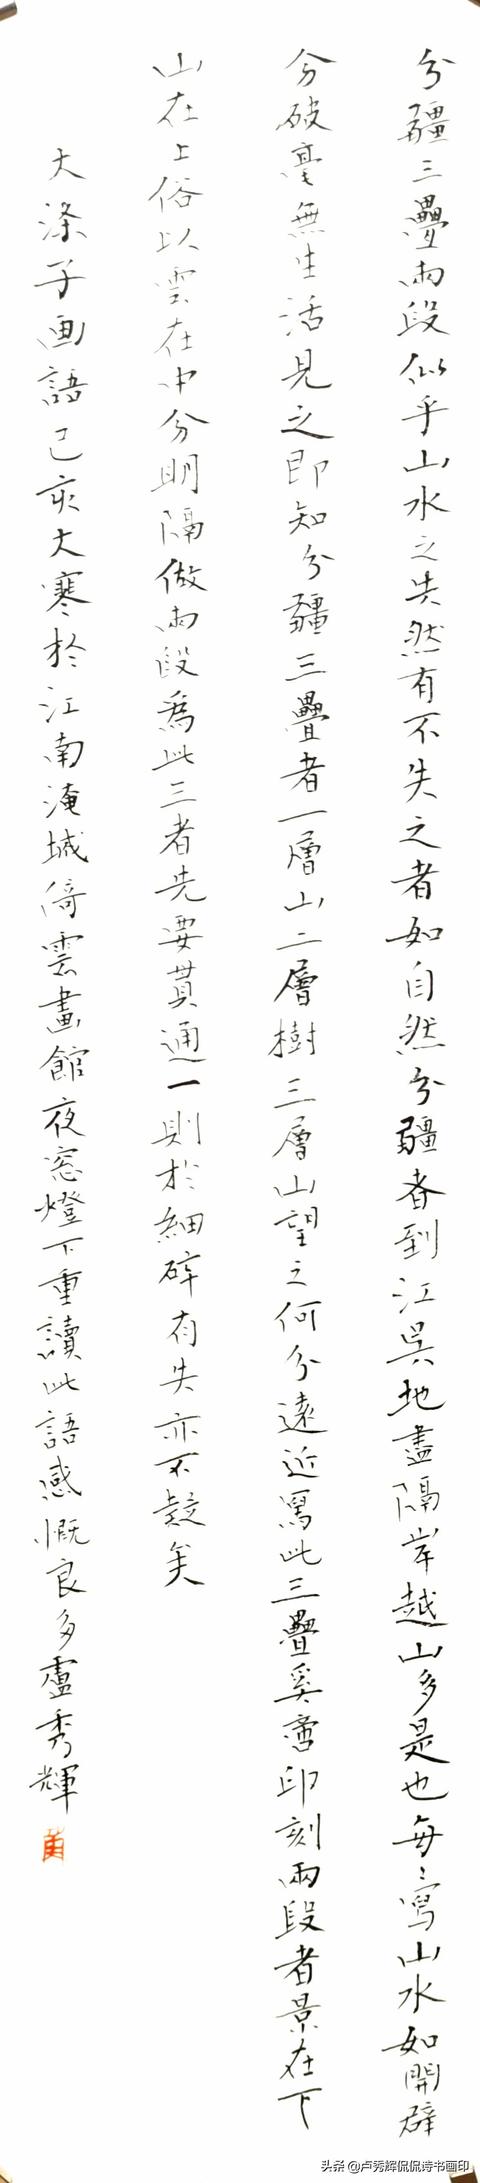 分疆三疊兩段似乎山水之失然有不失之者如自然分疆者到江吳地盡隔岸越山多是也每〻寫山水如開闢
分破毫無生活見之即知分疆三疊者一層山二層樹三層山望之何分遠近寫此三疊奚啻印刻兩段者景在下
山在上俗以雲在中分明隔做兩段為此三者先要貫通一則於細碎有失亦不殼矣
大滌子画語己亥大寒於江南淹城倚雲畫館夜窓燈下重讀此語感慨良多盧秀輝
头条 @卢秀辉侃侃诗书画印